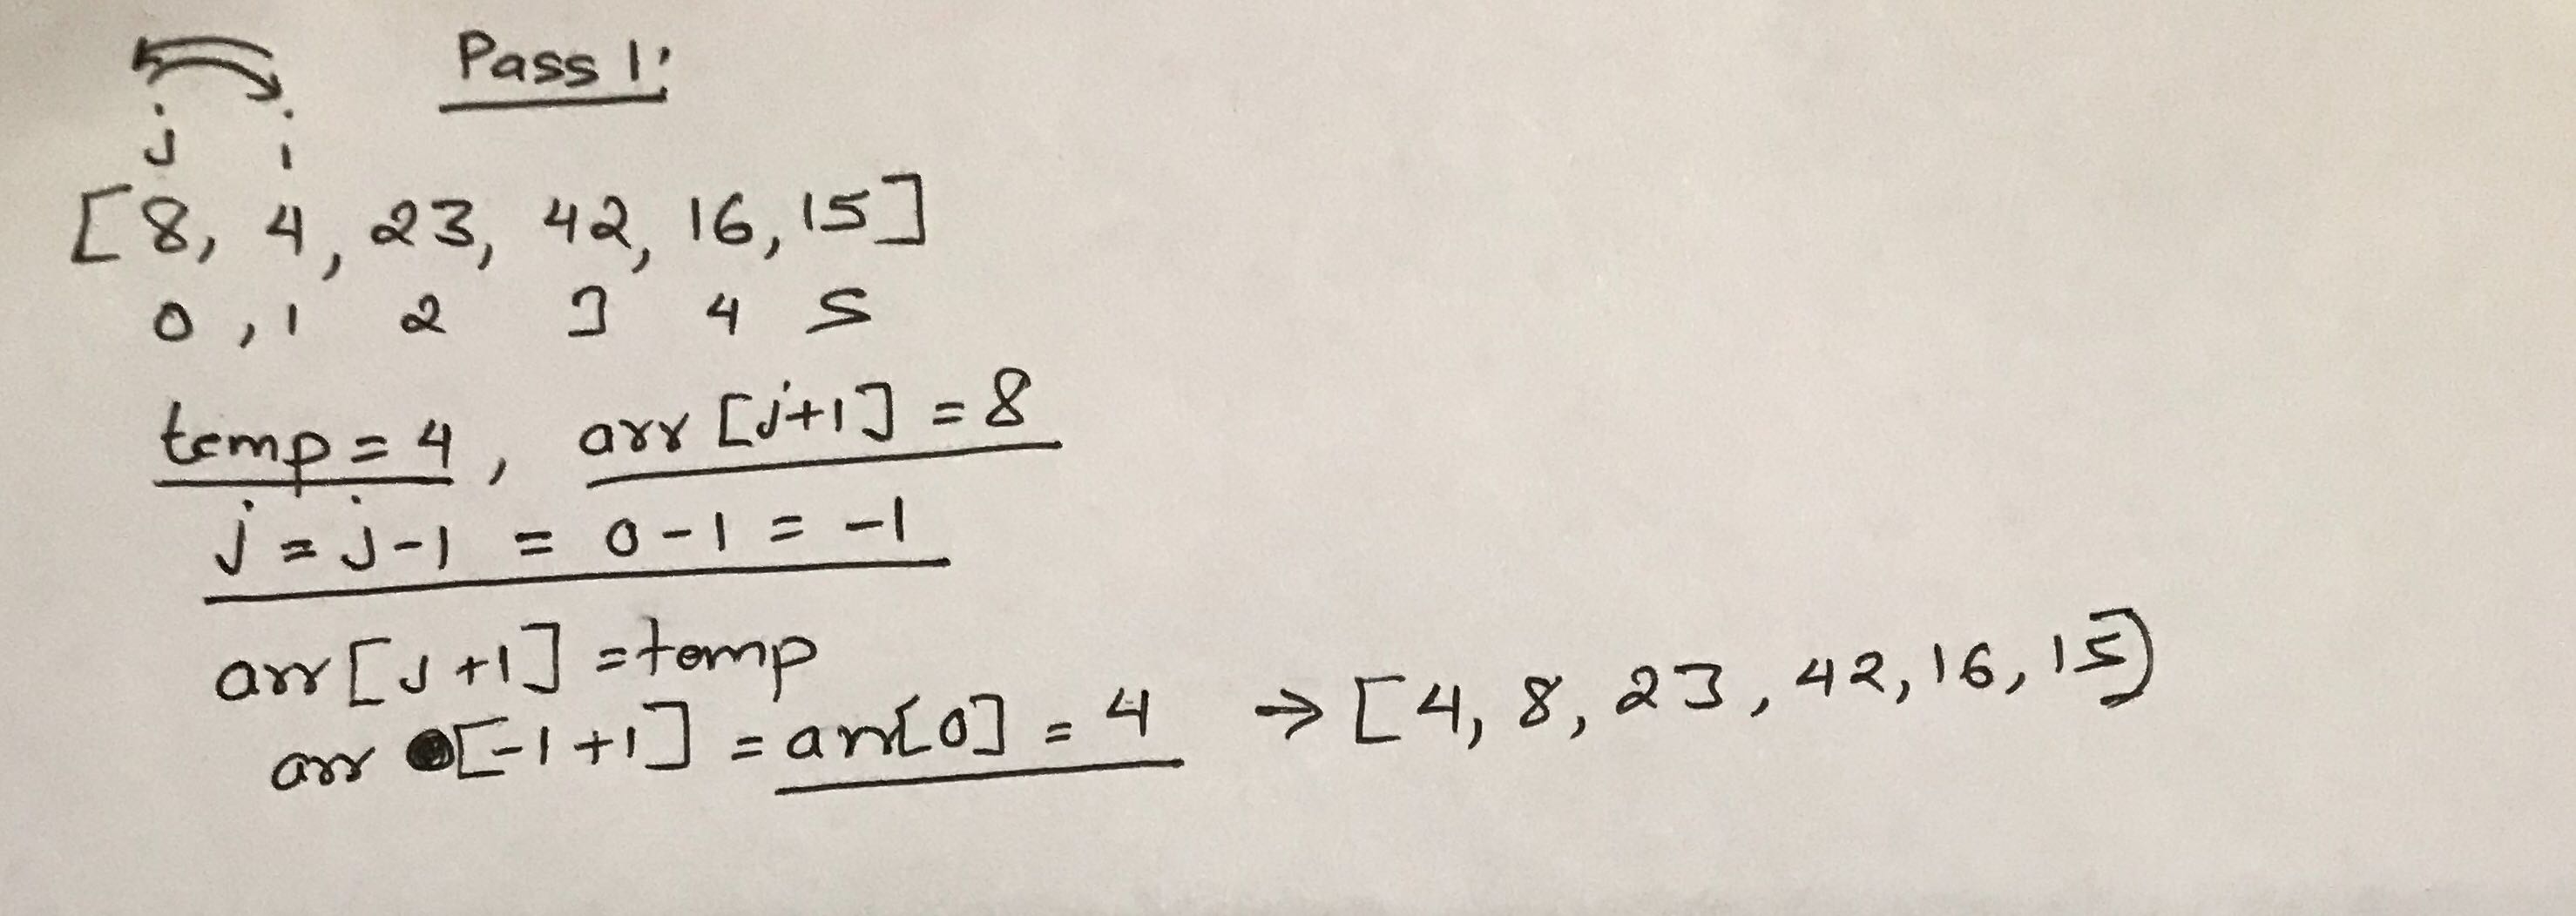 Pass 1:
j i
[8, 4, 23, 42, 16, 15]
0, 1 2 3 4 5
temp = 4, arr [j+1] = 8
j = j-1 = 0-1 = -1
arr [j+1] = temp
arr [-1+1] = arr[0] = 4 → [4, 8, 23, 42, 16, 15]